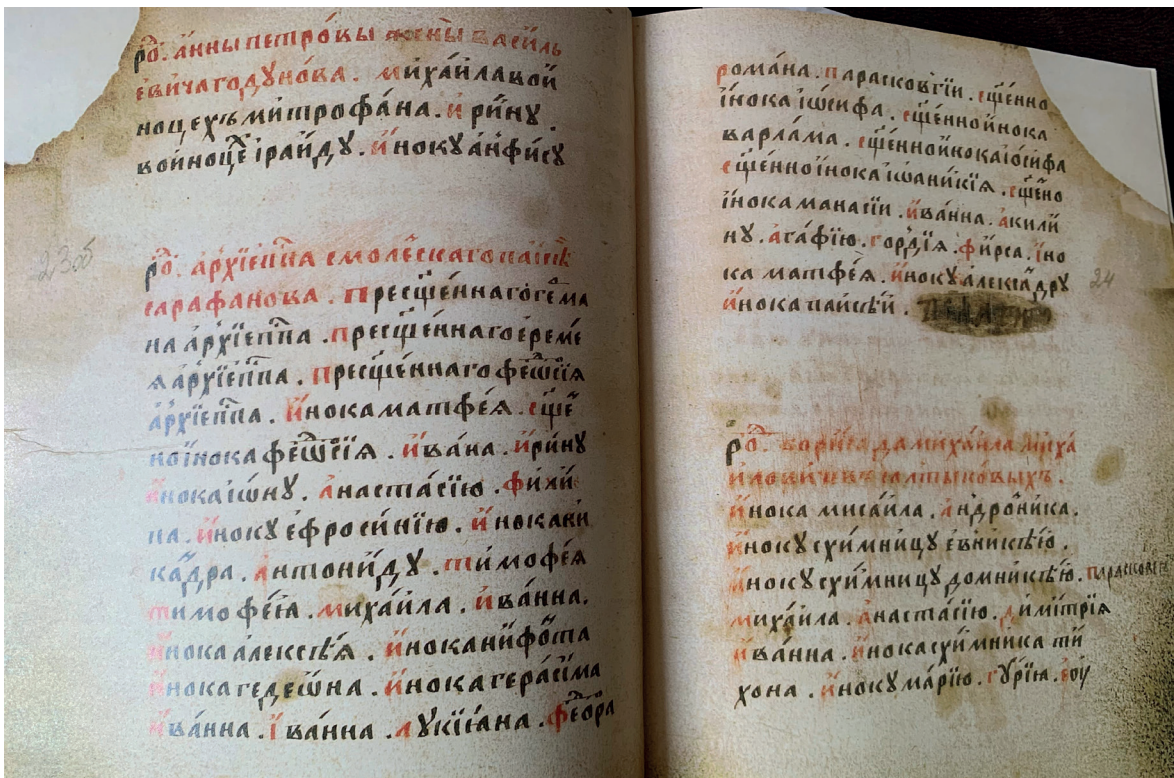 рѡ҃. а́нны петро́вы жены̀ васи́ль
еви́ча годуно́ва. михаи́ла вой
ноцехъ митрофа́на. и҆ри́ну.
войноце҆ іраи́ду. и҆ноку а҆нфи́су
рѡ҃. а҆рхїепⷭ҇па смоле́скаго
сарафанова. пресщ҃е́ннагѡ ге҆ма
на а҆рхїепⷭ҇па. пресщ҃е́ннаго ере́ме
я а҆рхїепⷭ҇па. пресщ҃е́ннаго феѡⷣсїя
а҆рхїепⷭ҇па. и҆нока матфе́я. сщ҃е́
ноі҆нока феѡⷣсїя. и҆ва́на. и҆ри́ну
и҆нока іѡ́ну. анаста́сїю. фили́
па. и҆ноку ефроси́нїю. и҆нока ни
ка́дра. антони́ду. тимофе́я
тимофе́я. михаи́ла. и҆ва́нна.
и҆нока алексѣ́я. и҆нока нифо́та
и҆нока гедеѡ́на. и҆нока гера́сїма
и҆ва́нна. і҆ва́нна. лукїа́на. фео́ра
23об
рома́на. параскові́и. сщ҃е́нно
і҆нока іѡ́сифа. сщ҃е́нноі҆нока
варла́ма. сщ҃е́нной҆нока іо́сифа
сщ҃е́нноі҆нока іѡани́кїя. сщ҃е́но
і҆нока мана́сїи. и҆ва́нна. акили
ну. ага́фїю. го́рдїя. фи́рса. і҆но
ка матфе́я. и҆ноку алекса́дру
и҆нока паисѣ́й.
24
рѡⷣ. бори́са да миха́ила миха
иловичевъ салтыко́выхъ.
и҆нока мисаи́ла. андро́ника.
и҆ноку схи́мницу е҆вникѣ́ю.
и҆ноку схи́мницу домникѣ́ю. парасковеи
михаи́ла. анаста́сїю. дими́трїя
и҆ва́нна. и҆нока схи́мника ти́
хона. и҆ноку ма́рїю. гу́рїя. еѵ